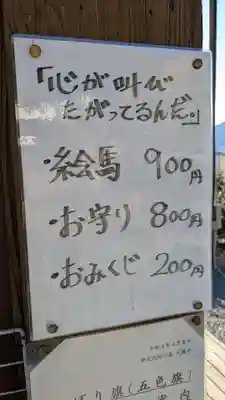 「心が叫び
たがってるんだ。」
・絵馬 900円
・お守り 800円
・おみくじ 200円
(五色旗)
案内